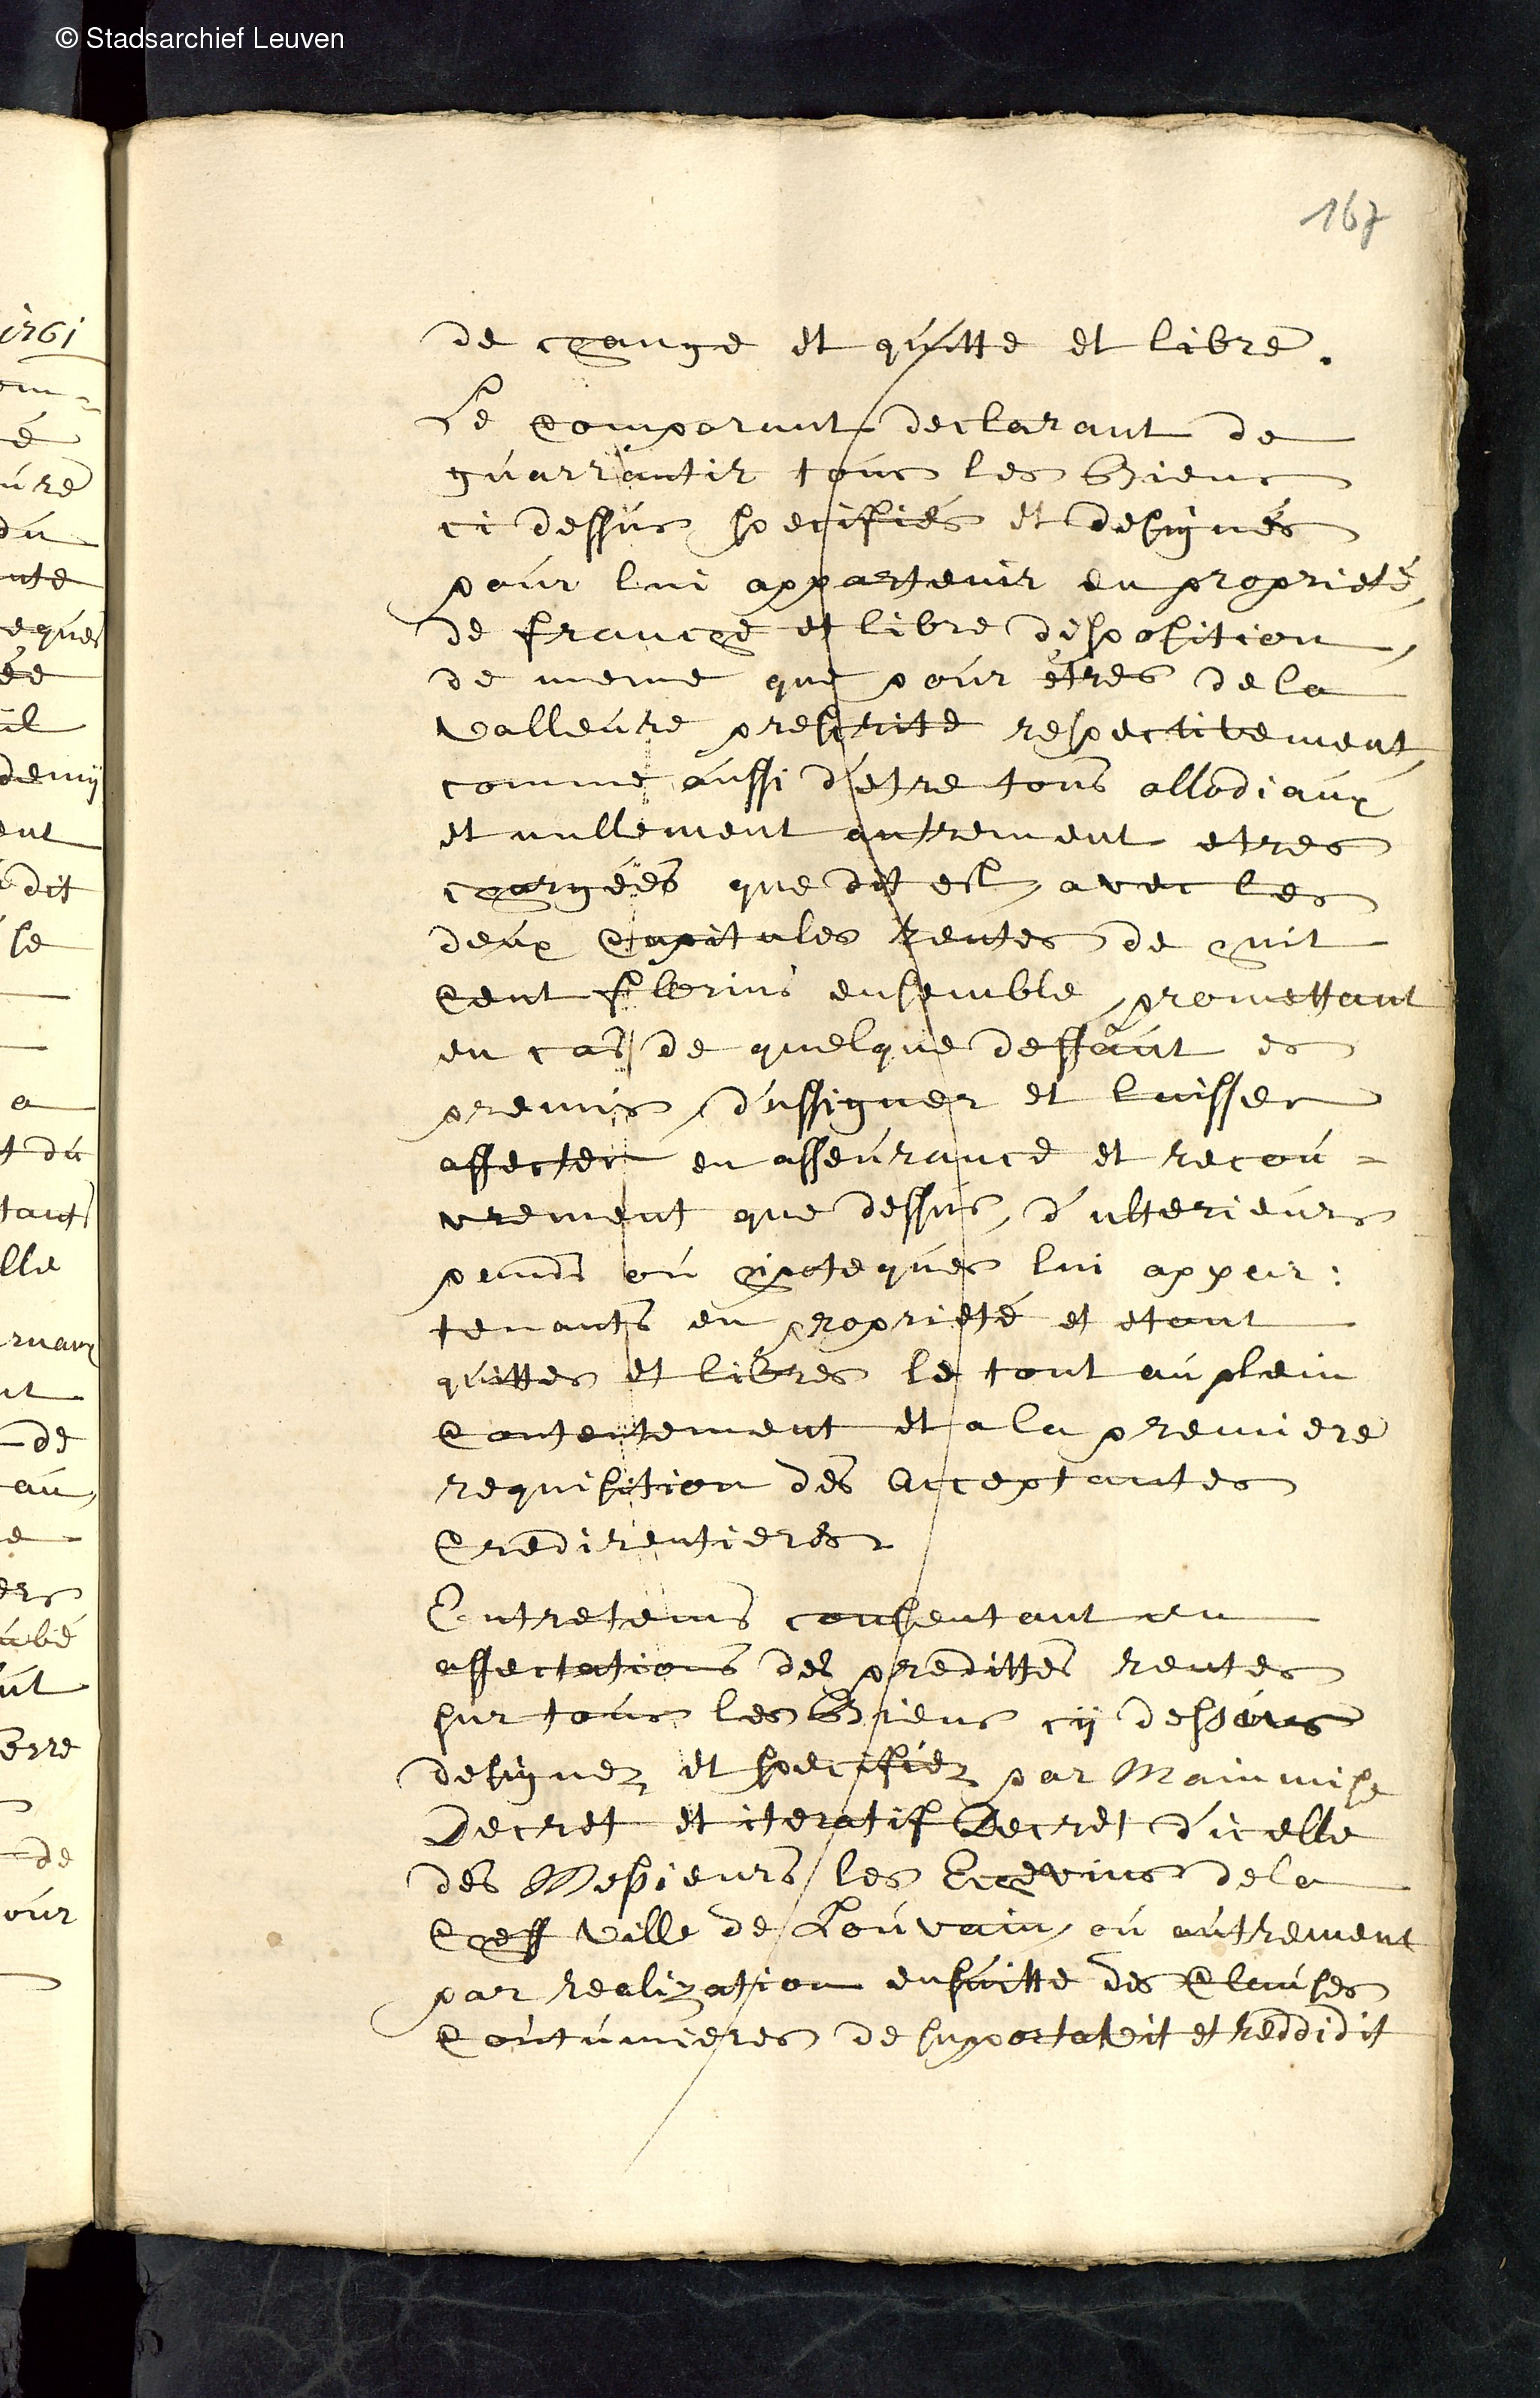 © Stadsarchief Leuven
167
de change et quitte et libre.
Le Comparant declarant de
guarrantir tous les Biens
ci dessus specifiés et designés
pour lui appartenir en proprieté,
de franche et libre disposition,
de meme que pour étres de la
valleure prescrite respectivement,
comme aussi d'etre tous allodiaux
et nullement autrement etres
chargées que dit est, avec les
deux Capitales Rentes de huit
Cent florins ensemble, promettant
en cas de quelque deffaut es
premis, d'assigner et laisser
affecter en asseurance et recou=
vrement que dessus, d'ulterieurs
pands ou hipoteques lui appar:
tenants en proprieté et etant
quittes et libres le tout au plein
Contentement et a la premiere
requisition des Acceptantes
Credirentieres
Entretems consentant en
affectations des predittes rentes
sur tous les Biens cy dessus
designez et specifiez par Mainmise
Decret et iteratif Decret d'icelle
des Messieurs les Echevins de la
Cheff ville de Louvain, ou autrement
par realization ensuitte des Clauses
Coutumieres de supportavit et reddidit
1761
é
ure
du
nte
eques
ée
il
demij
ent
dit
se
a
t du
tants
lle
nt
de
au
e
ers
ubé
ut
de
our